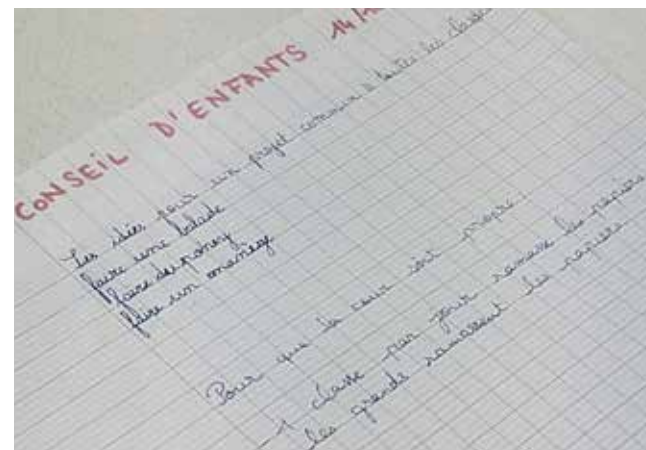 CONSEIL D'ENFANTS 14
Les idées pour un projet commun à toutes les
faire une balade
faire du poney
faire un manège
Pour que la cour soit propre :
- 1 classe par jour ramasse les papiers
les grands ramassent les papiers